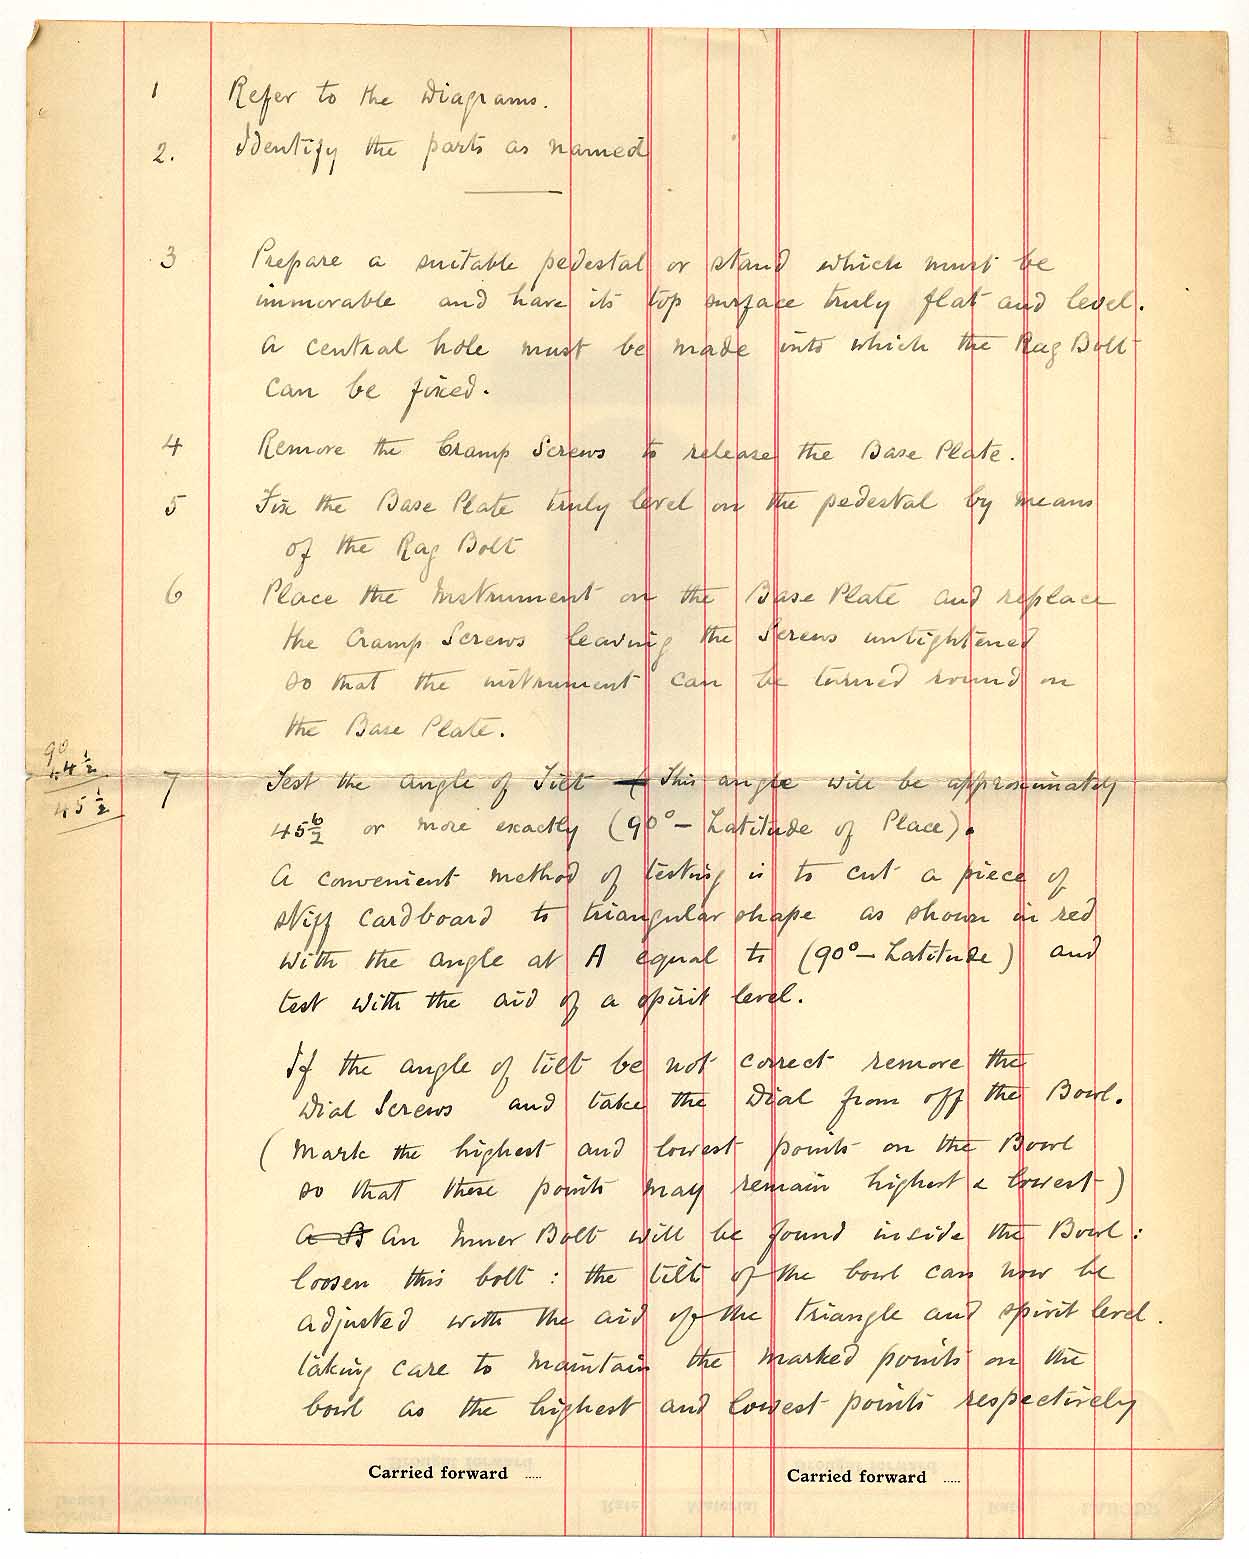 1 Refer to the Diagrams.
2. Identify the parts as named
3 Prepare a suitable pedestal or stand which must be
immovable and have its top surface truly flat and level.
A central hole must be made into which the Rag Bolt
can be fixed.
4 Remove the Cramp Screws to release the Base Plate.
5 Fix the Base Plate truly level on the pedestal by means
of the Rag Bolt
6 Place the Instrument on the Base Plate and replace
the Cramp Screws leaving the Screws untightened
so that the instrument can be turned round on
the Base Plate.
90
44½
45½
7 Test the angle of Tilt This angle will be approximately
45 or more exactly (90° - Latitude of Place).
A convenient method of testing is to cut a piece of
stiff cardboard to triangular shape as shown in red
with the angle at A equal to (90° - Latitude) and
test with the aid of a spirit level.
If the angle of tilt be not correct remove the
Dial Screws and take the Dial from off the Bowl.
(Mark the highest and lowest points on the Bowl
so that these points may remain highest & lowest)
An Inner Bolt will be found inside the Bowl:
loosen this bolt: the tilt of the bowl can now be
adjusted with the aid of the triangle and spirit level.
taking care to maintain the marked points on the
bowl as the highest and lowest points respectively
Carried forward ..... Carried forward .....